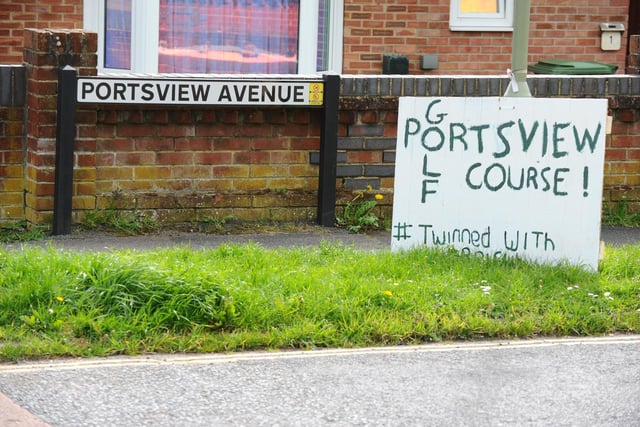 PORTSVIEW AVENUE
1
GOLF
PORTSVIEW
COURSE!
# Twinned WITH